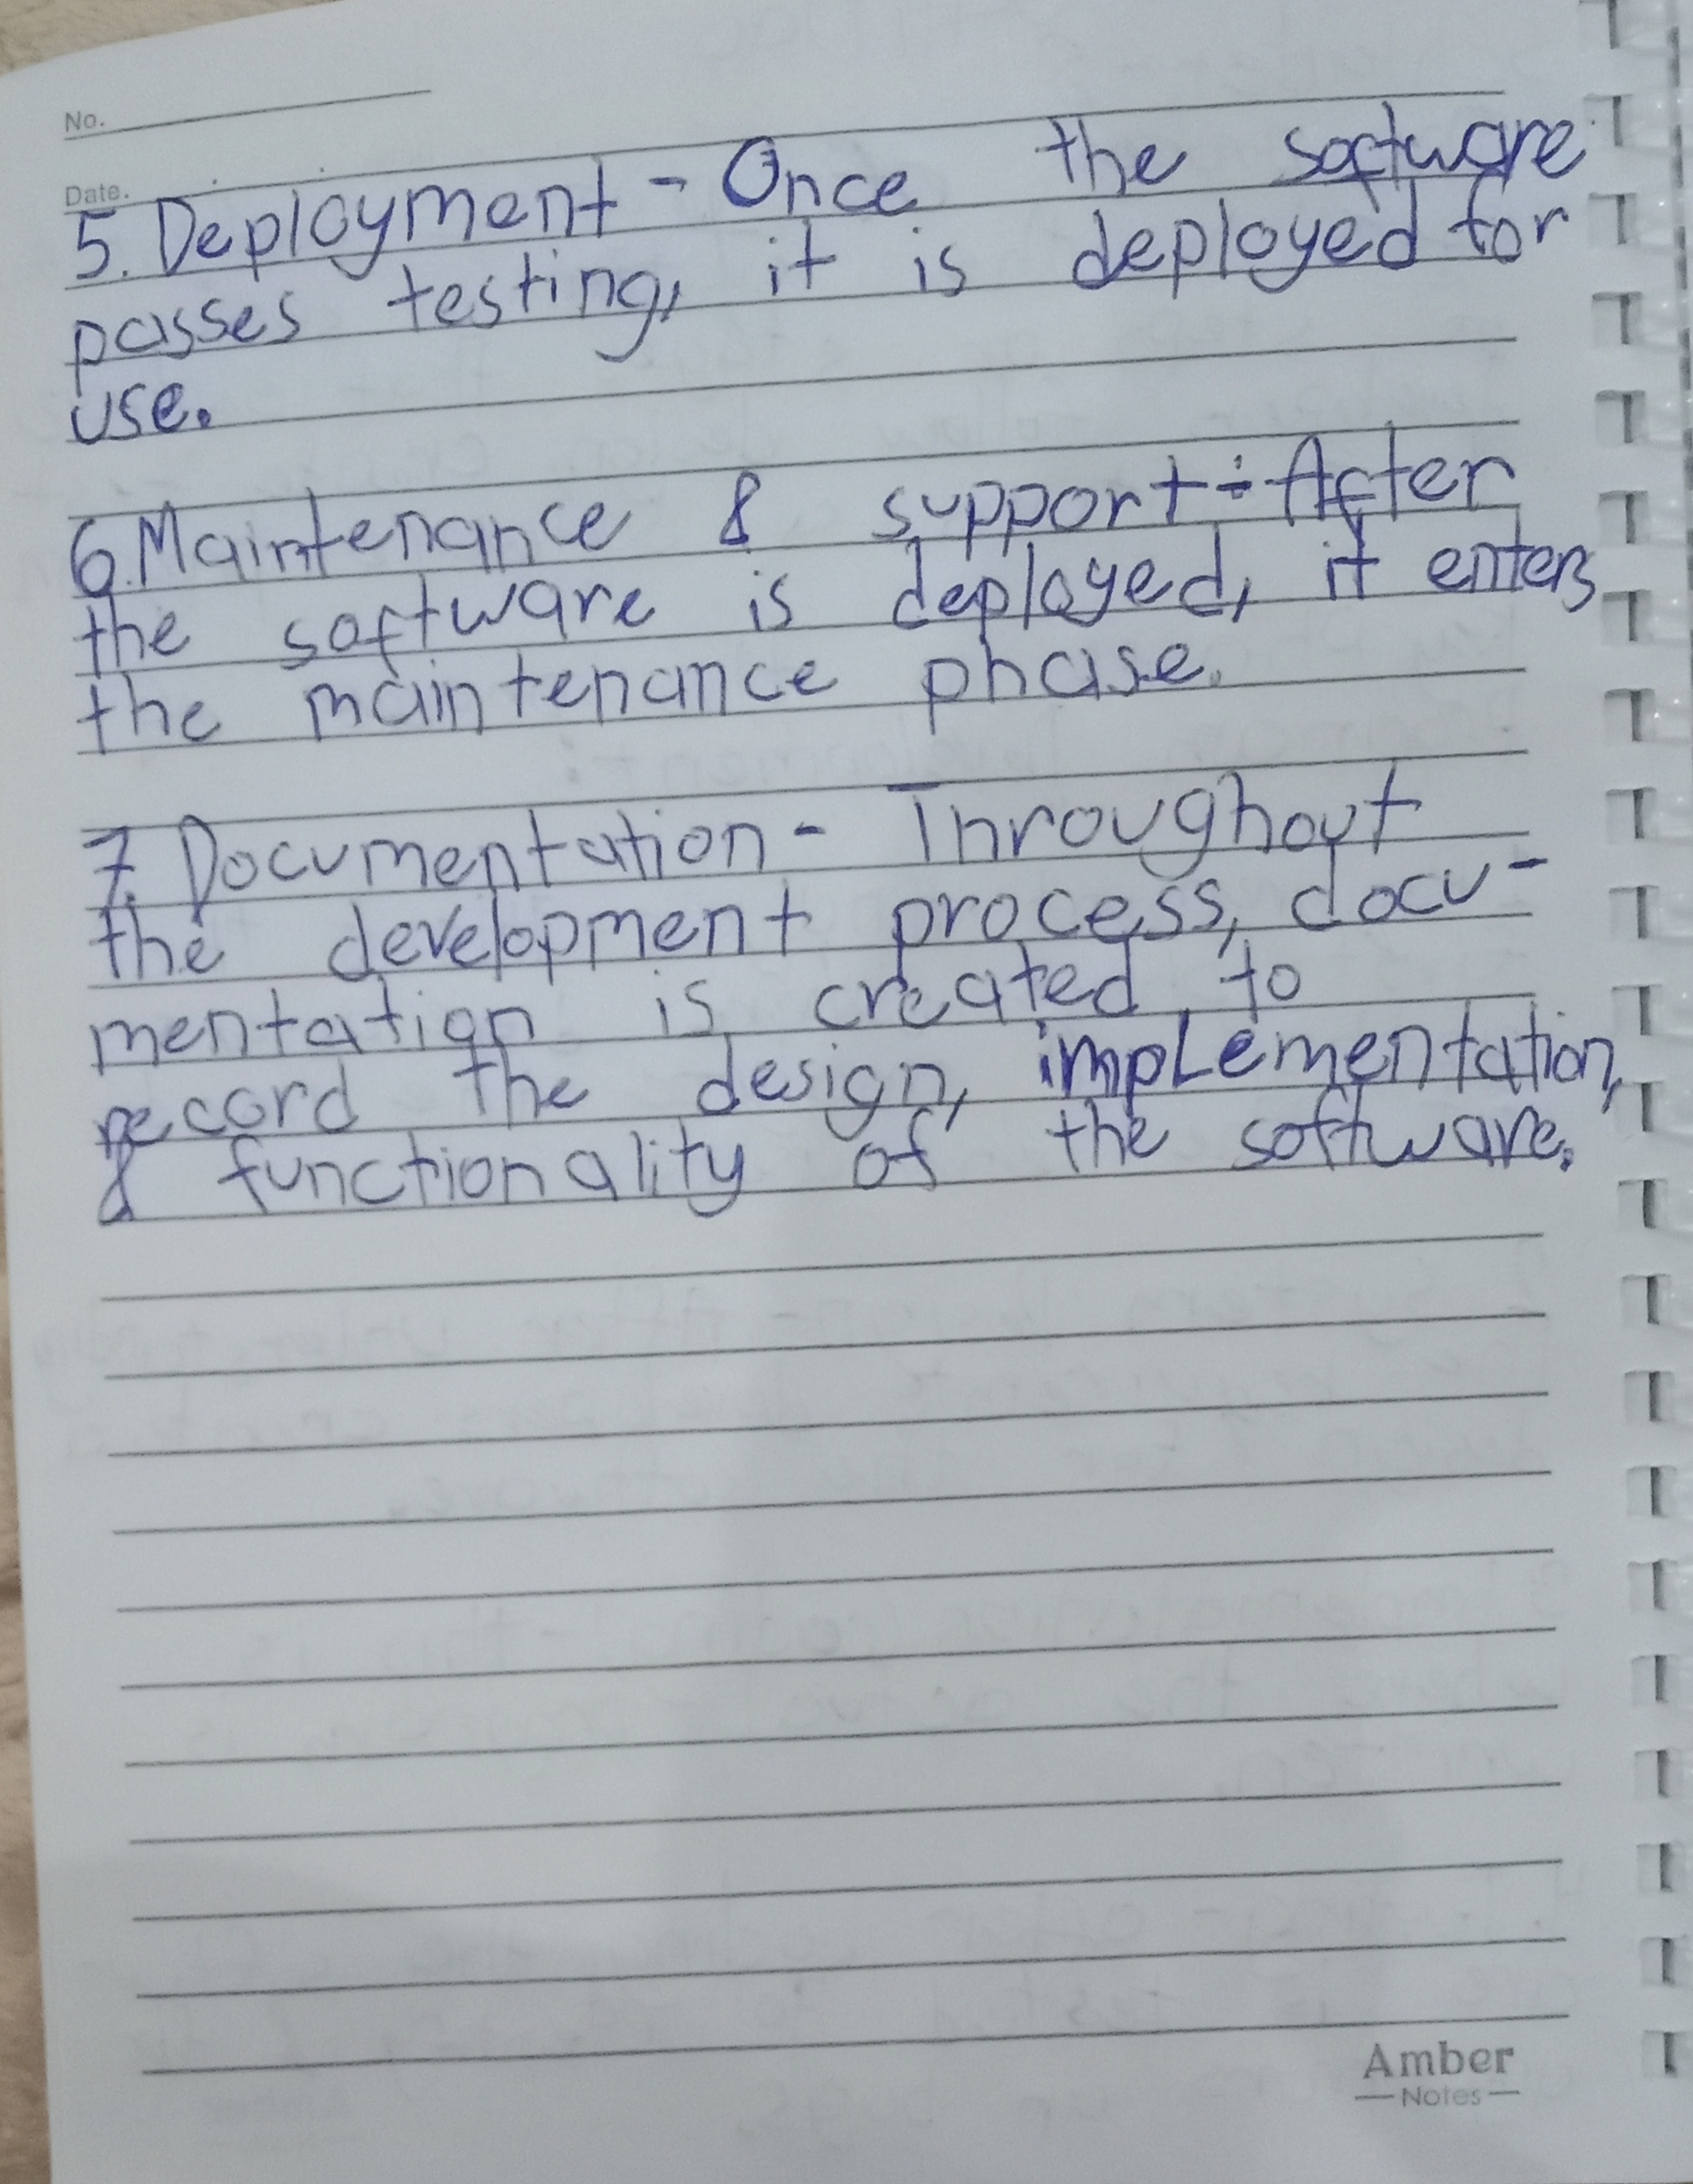 No.
Date.
5. Deployment - Once the software
passes testing, it is deployed for
use.
6. Maintenance & support :- After
the software is deployed, it enters
the maintenance phase.
7. Documentation - Throughout
the development process, docu-
mentation is created to
record the design, implementation,
& functionality of the software.
Amber
Notes